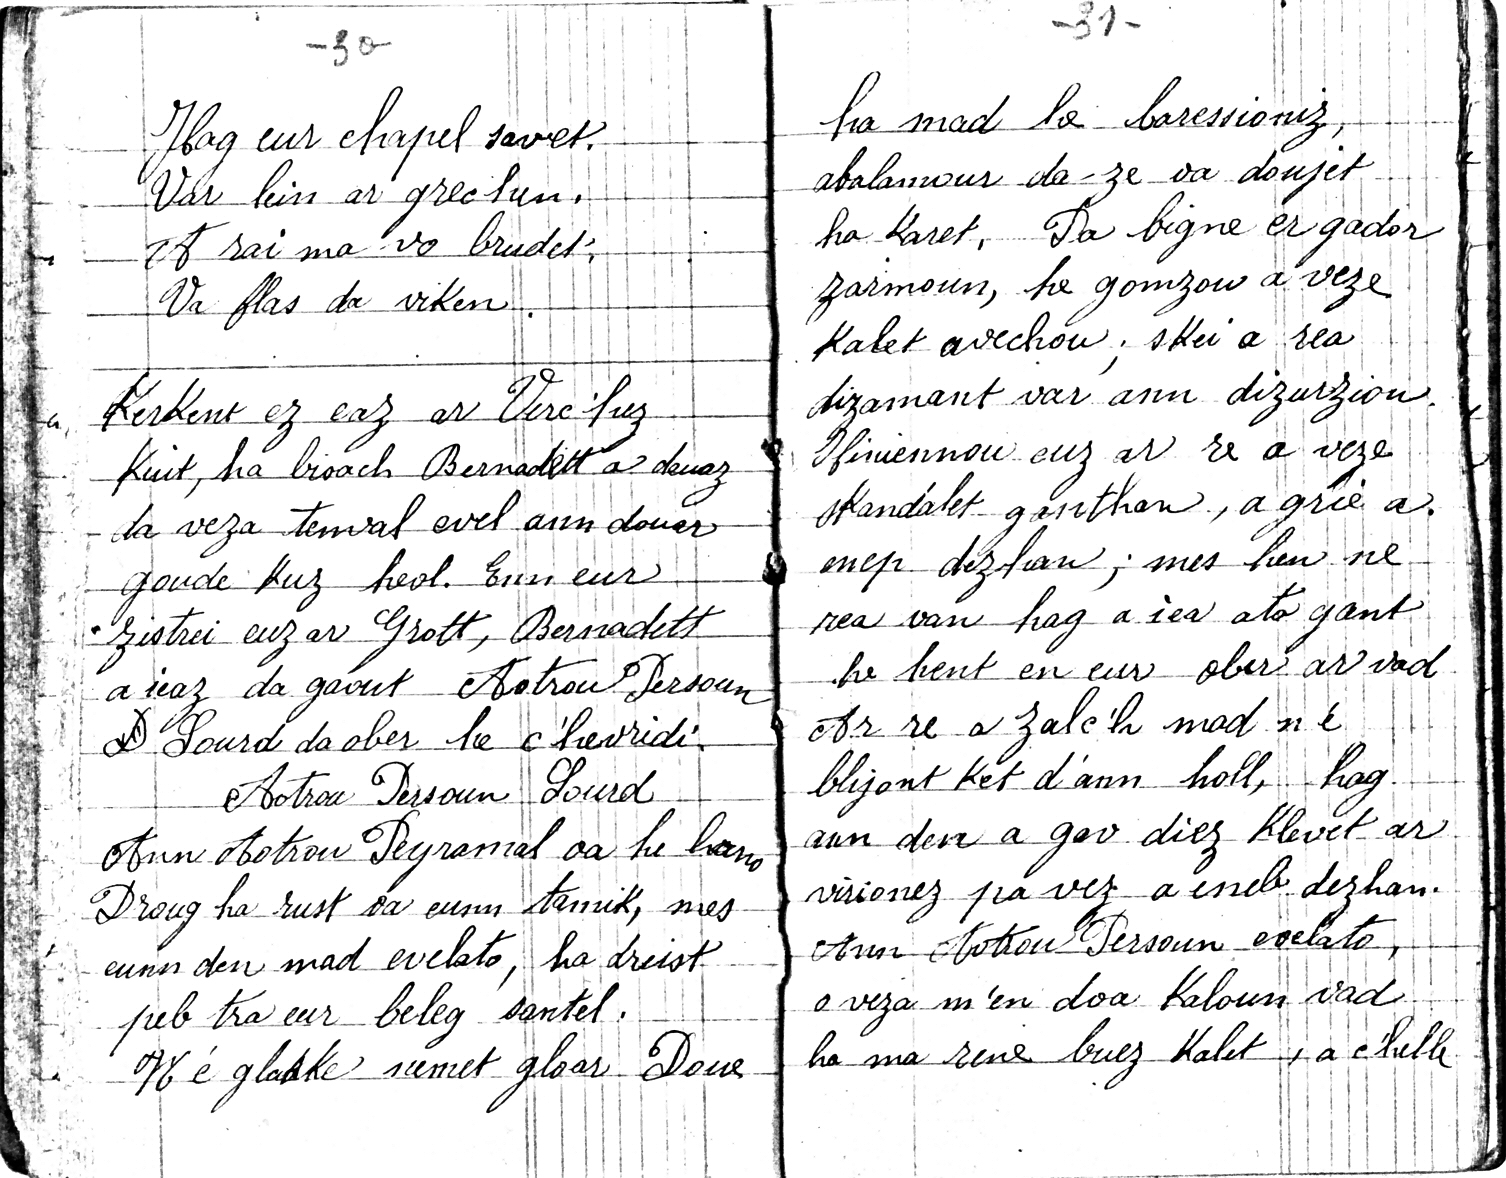 -30-
Hag eur chapel savet.
Var lein ar grec'hen.
A rai ma vo brudet.
Va flas da viken.
Kerkent ez eaz ar Verc'hez
kuit, ha broach Bernadett a deuaz
da veza tenval evel ann douar
goude kuz heol. Enn eur
zistrei euz ar Grott, Bernadett
a ieaz da gaout Aotrou Persoun
Lourd da ober he c'hevridi.
Aotrou Persoun Lourd
Ann Aotrou Peyramal oa he hano
Droug ha rust oa eunn tamik, mes
eunn den mad evelato, ha dreist
peb tra eur beleg santel.
N'é glaske nemet gloar Doue
-31-
ha mad he baressioniz,
abalamour da-ze oa doujet
ha karet. Da bigne er gador
zarmoun, he gomzou a veze
kalet avechou; skei a rea
dizamant var ann dizurziou.
Hiniennou euz ar re a veze
skandalet ganthan, a grie a.
enep dezhan; mes hen ne
rea van hag a iea ato gant
he hent en eur ober ar vad
Ar re a zalc'h mad n'é
blijont ket d'ann holl, hag
ann den a gav diez klevet ar
virionez pa vez a eneb dezhan.
Ann Aotrou Persoun evelato,
o veza m'en doa kaloun vad
ha ma rene buez kalet, a c'helle